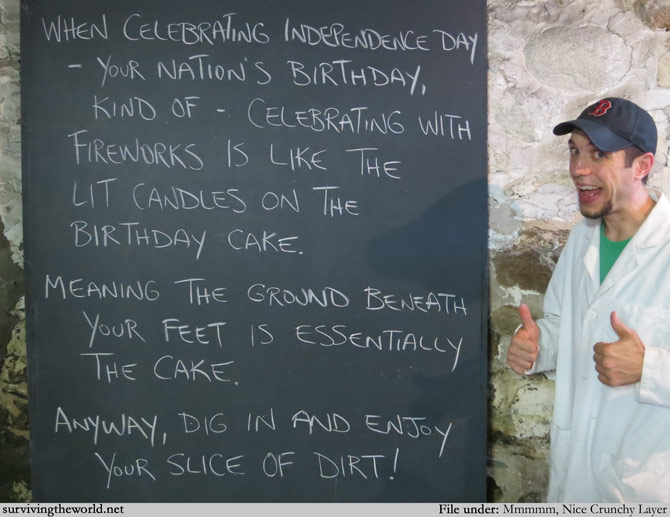 WHEN CELEBRATING INDEPENDENCE DAY
- YOUR NATION'S BIRTHDAY,
KIND OF - CELEBRATING WITH
FIREWORKS IS LIKE THE
LIT CANDLES ON THE
BIRTHDAY CAKE.
MEANING THE GROUND BENEATH
YOUR FEET IS ESSENTIALLY
THE CAKE.
ANYWAY, DIG IN AND ENJOY
YOUR SLICE OF DIRT!
B
survivingtheworld.net
File under: Mmmmm, Nice Crunchy Layer